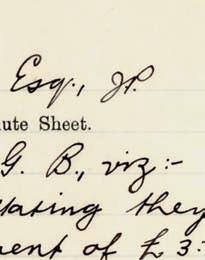 Esq., J.P.
ute Sheet.
G. B., viz:-
tating they
ment of £3: